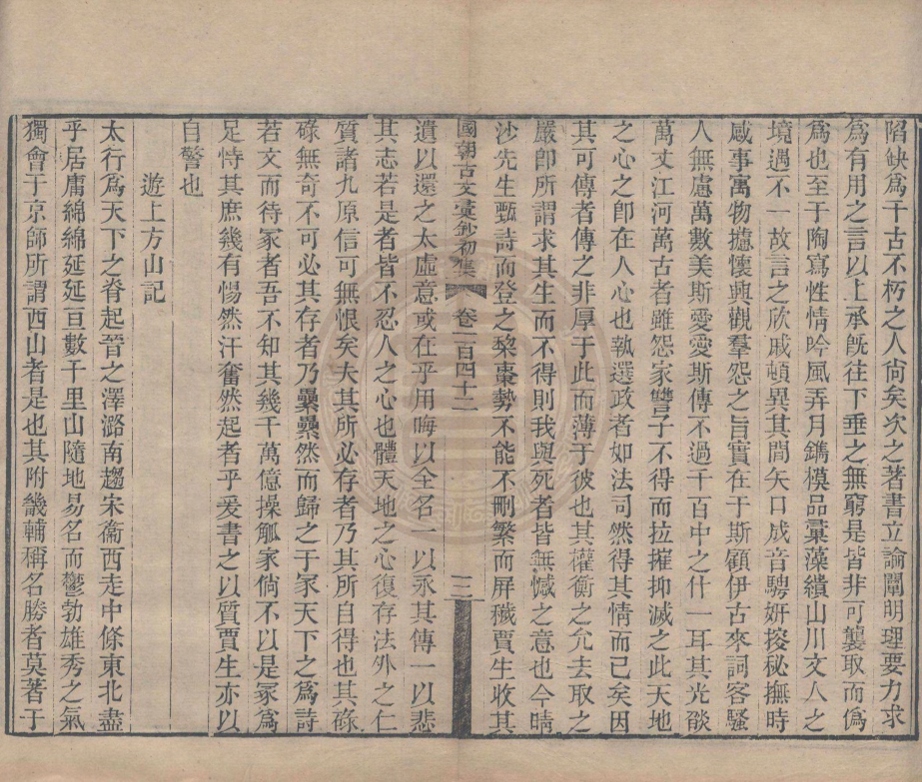 陷缺爲千古不朽之人尚矣次之著書立論闡明理要力求
爲有用之言以上承旣往下垂之無窮是皆非可襲取而僞
爲也至于陶寫性情吟風弄月鐫模品彚藻繢山川文人之
境遇不一故言之欣戚頓異其間矢口成音騁妍挍秘撫時
感事寓物攄懷興觀羣怨之旨實在于斯顧伊古來詞客騷
人無慮萬數美斯愛愛斯傳不過千百中之什一耳其光燄
萬丈江河萬古者雖怨家讐子不得而拉摧抑滅之此天地
之心之卽在人心也執選政者如法司然得其情而已矣因
其可傳者傳之非厚于此而薄于彼也其權衡之允去取之
嚴卽所謂求其生而不得則我與死者皆無憾之意也今晴
沙先生甄詩而登之棃棗勢不能不刪繁而屏穢賈生收其
國朝古文彚鈔初集 卷一百四十二 二
遺以還之太虛意或在乎用晦以全名一以永其傳一以悲
其志若是者皆不忍人之心也體天地之心復存法外之仁
質諸九原信可無恨矣夫其所必存者乃其所自得也其碌
碌無奇不可必其存者乃纍纍然而歸之于冢天下之爲詩
若文而待冢者吾不知其幾千萬億操觚家倘不以是冢爲
足恃其庶幾有惕然汗奮然起者乎爰書之以質賈生亦以
自警也
遊上方山記
太行爲天下之脊起晉之澤潞南趨宋衞西走中條東北盡
乎居庸綿綿延延亘數千里山隨地易名而鬱勃雄秀之氣
獨會于京師所謂西山者是也其附畿輔稱名勝者莫著于